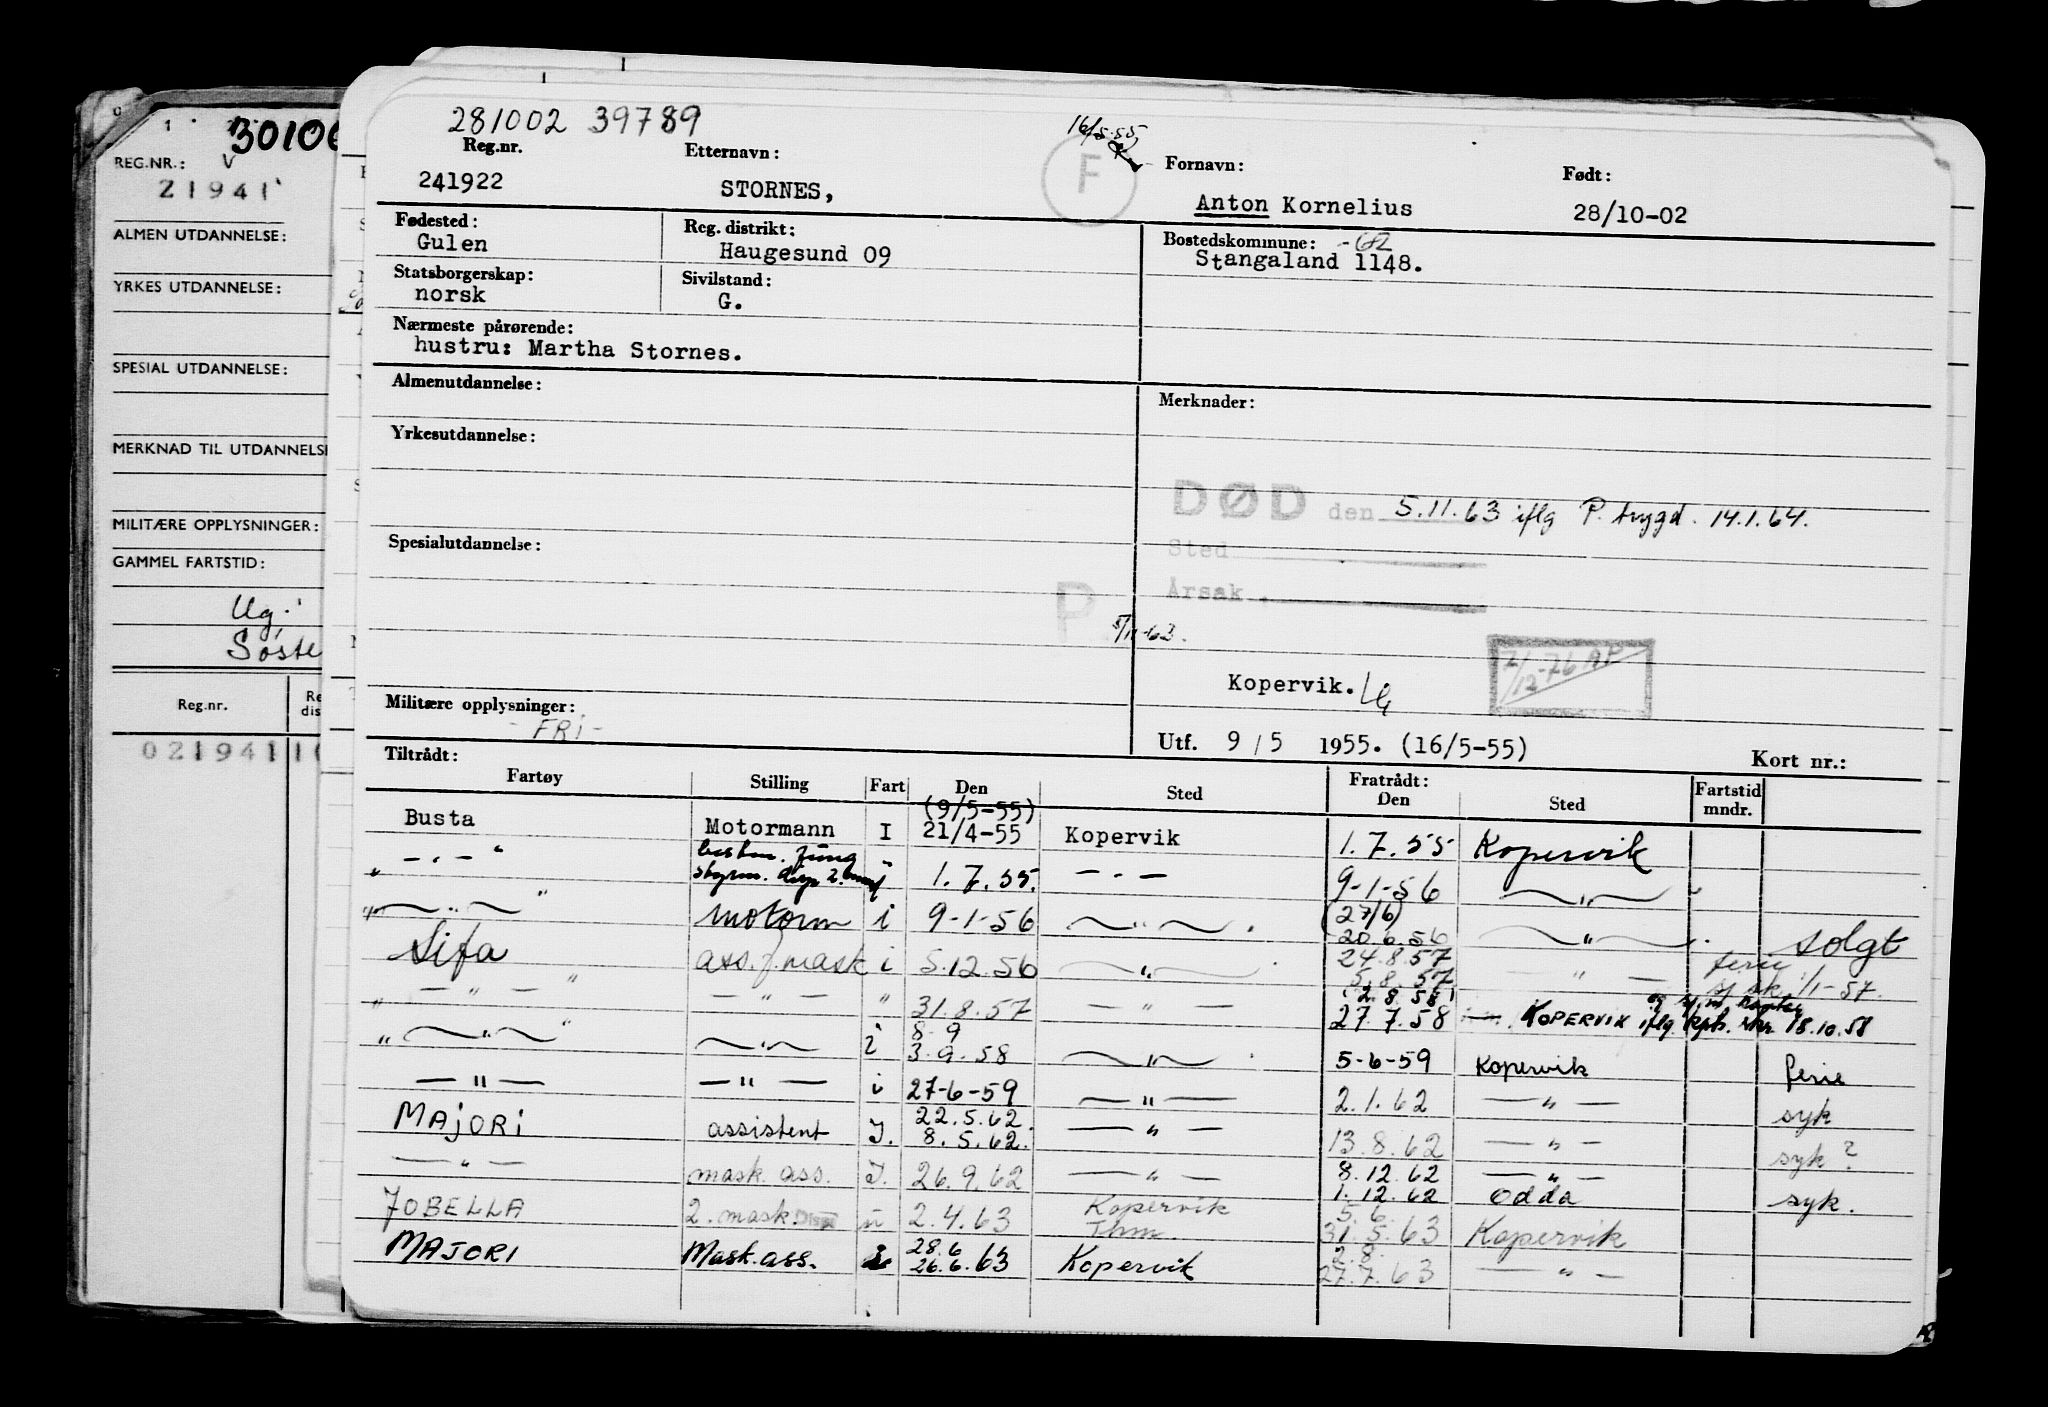 30106
REG.NR.: V
21941
ALMEN UTDANNELSE:
YRKES UTDANNELSE:
SPESIAL UTDANNELSE:
MERKNAD TIL UTDANNELSE
MILITÆRE OPPLYSNINGER:
GAMMEL FARTSTID:
Ug.
Søste
Reg.nr. Re
dis
021941 1
281002 39789
16/5-55
Reg.nr. Etternavn: F Fornavn: Født:
241922 STORNES, Anton Kornelius 28/10-02
Fødested: Reg. distrikt: Bostedskommune: -62
Gulen Haugesund 09 Stangaland 1148.
Statsborgerskap: Sivilstand:
norsk G.
Nærmeste pårørende:
hustru: Martha Stornes.
Almenutdannelse: Merknader:
Yrkesutdannelse:
DØD den 5.11.63 iflg P. trygd. 14.1.64.
Spesialutdannelse: Sted
P Årsak
5/11-63.
7/12-76 AP
Kopervik.
Militære opplysninger:
-FRI-
Utf. 9/5 1955. (16/5-55) Kort nr.:
Tiltrådt: Fratrådt: Fartstid
Fartøy Stilling Fart Den Sted Den Sted mndr.
(9/5-55)
Busta Motormann I 21/4-55 Kopervik 1.7.55 Kopervik
— " — " bestm. fung
styrm. disp 2. " 1.7.55. — " — 9-1-56 — " —
" — " — " motorm i 9-1-56 — " — (27/6)
20.6.56 — " — solgt
Sifa ass. f mask i 5.12.56 — " — 24.8.57
5.8.57 — " — ferie
sj sk. 1/1-57.
" — " — " — " — " 31.8.57 — " — (2.8.58)
27.7.58 KOPERVIK iflg kpt. skr 18.10.58
" — " — " — " — i 8 9
3.9.58 — " — 5-6-59 Kopervik ferie
— " — — " — i 27-6-59 — " — 2.1.62 — " — syk
MAJORI assistent I. 22.5.62.
8.5.62. — " — 13.8.62 — " — syk?
— " — mask. ass. I. 26.9.62 — " — 8.12.62 — " —
1.12.62 Odda syk.
JOBELLA 2. mask. Disp u 2.4.63 Kopervik
Thm. 5.6.
31.5.63 Kopervik
MAJORI Mask.ass. 28.6
26.6.63 Kopervik 2.8.
27.7.63 — " —